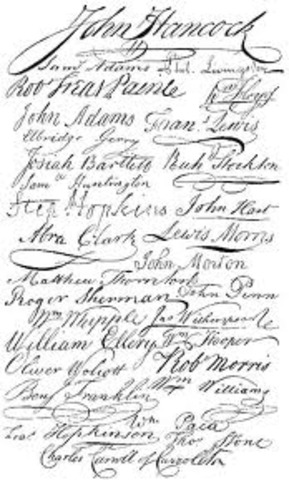 John Hancock
Sam Adams Phil. Livingston
Robt Treat Paine Wm Floyd
John Adams Frans. Lewis
Elbridge Gerry
Josiah Bartlett Richd. Stockton
Saml Huntington
Step Hopkins John Hart
Abra Clark Lewis Morris
John Morton
Matthew Thornton
Roger Sherman John Penn
Wm Whipple Jno Witherspoon
William Ellery Wm Hooper
Oliver Wolcott Robt Morris
Benj Franklin Wm Williams
Wm Paca
Fras. Hopkinson Thos Stone
Charles Carroll of Carrollton